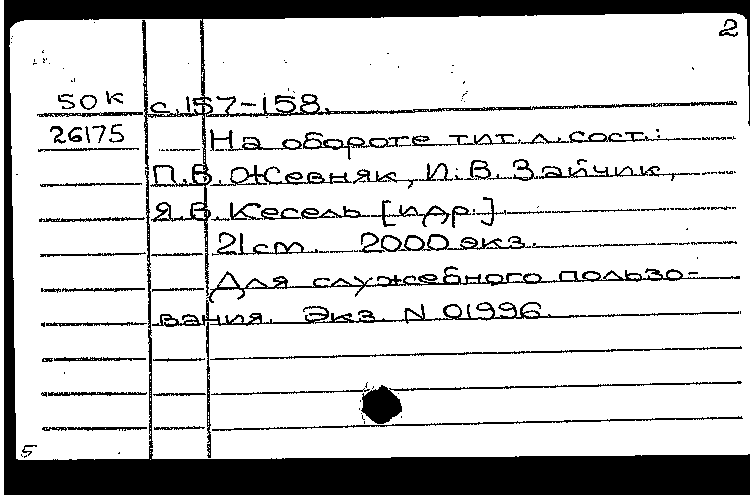 2
50К с.157-158.
26175 На обороте тит.л.сост.:
П.В.Жевняк, И.В.Зайчик,
Я.В.Кесель [и др.].
21см. 2000 экз.
Для служебного пользо-
вания. Экз. N 01996.
5